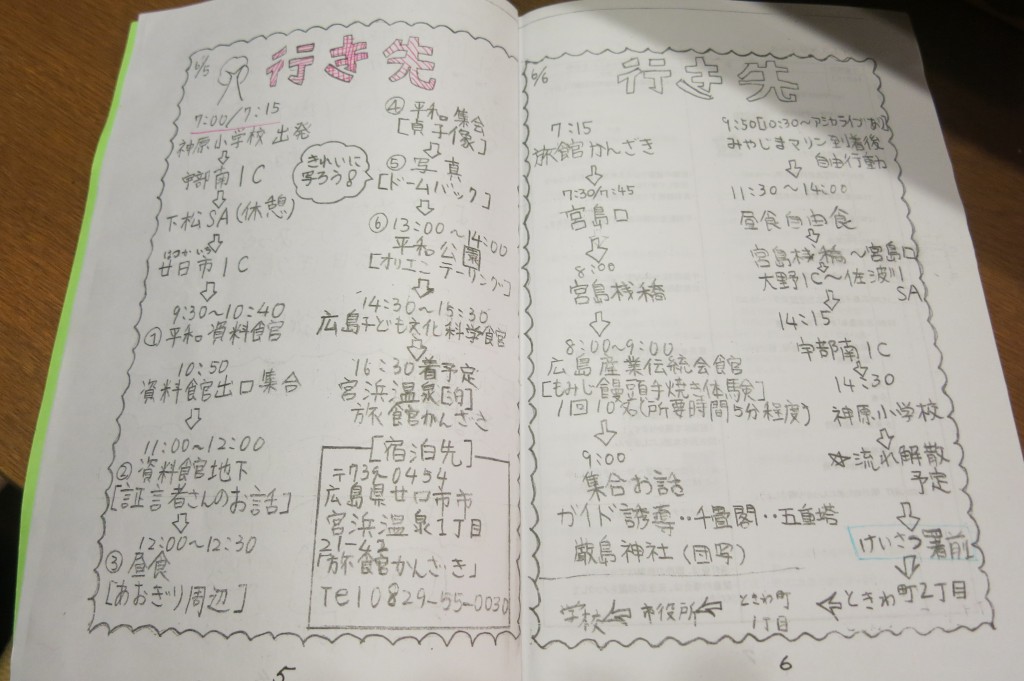 6/5
行き先
7:00/7:15
神原小学校 出発
宇部南IC
下松SA(休憩)
はつかいち
廿日市IC
9:30~10:40
①平和資料館
10:50
資料館出口集合
11:00~12:00
②資料館地下
[証言者さんのお話]
12:00~12:30
③昼食
[あおぎり周辺]
きれいに
写ろう!
④平和集会
[貞子像]
⑤写真
[ドームバック]
⑥13:00~14:00
平和公園
[オリエンテーリング]
14:30~15:30
広島子ども文化科学館
16:30着予定
宮浜温泉[泊]
旅館かんざき
[宿泊先]
〒739-0454
広島県廿日市市
宮浜温泉1丁目
21-42
「旅館かんざき」
Tel 0829-55-0030
5
6/6
行き先
7:15
旅館かんざき
7:30/7:45
宮島口
8:00
宮島桟橋
8:00~9:00
広島産業伝統会館
[もみじ饅頭手焼き体験]
1回10名(所要時間5分程度)
9:00
集合お話
ガイド誘導‥千畳閣‥五重塔
厳島神社(団写)
9:50[10:30~アシカライブあり]
みやじまマリン到着後
自由行動
11:30~14:00
昼食自由食
宮島桟橋~宮島口
大野IC~佐波川
SA
14:15
宇部南IC
14:30
神原小学校
☆流れ解散
予定
けいさつ署前
ときわ町2丁目
ときわ町
1丁目
市役所
学校
6